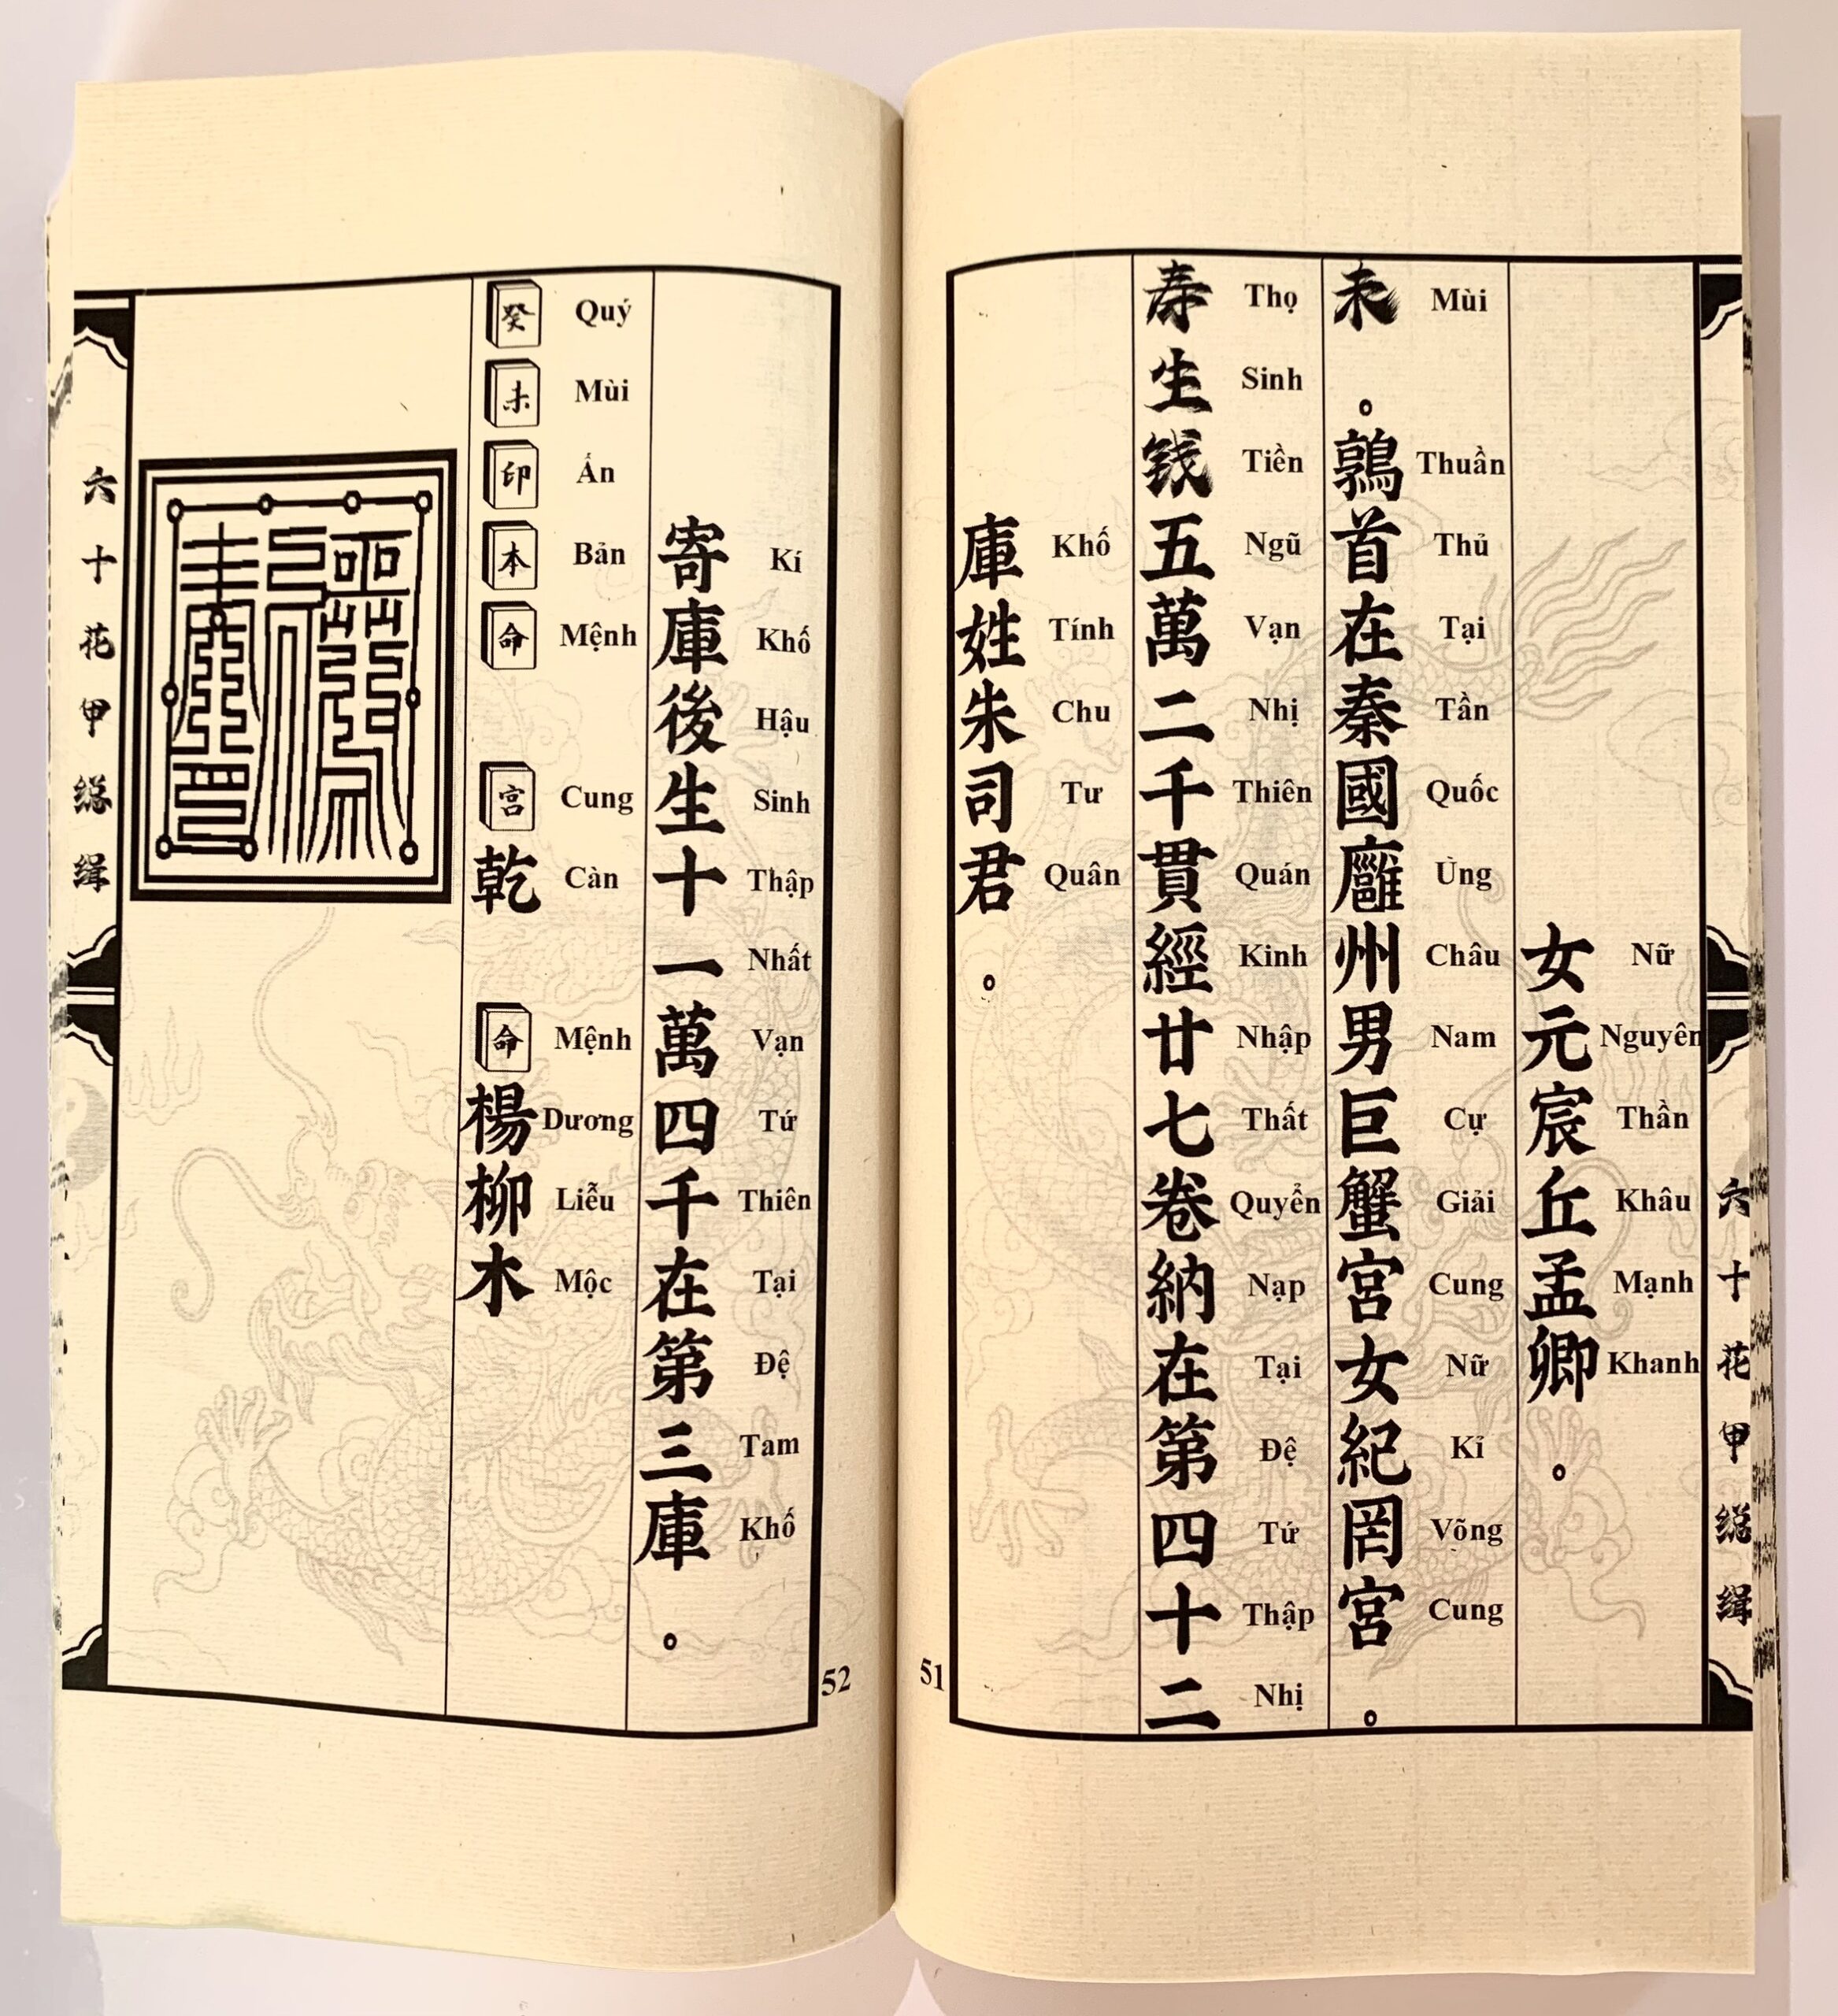 六十花甲総缉
女元宸丘孟卿。
Nữ Nguyên Thần Khâu Mạnh Khanh
未。鶉首在秦國廱州男巨蟹宮女紀罔宮。
Mùi Thuần Thủ Tại Tần Quốc Ủng Châu Nam Cự Giải Cung Nữ Kỉ Võng Cung
寿生钱五萬二千貫經廿七卷納在第四十二
Thọ Sinh Tiền Ngũ Vạn Nhị Thiên Quán Kinh Nhập Thất Quyển Nạp Tại Đệ Tứ Thập Nhị
庫姓朱司君。
Khố Tính Chu Tư Quân
51
寄庫後生十一萬四千在第三庫。
Kí Khố Hậu Sinh Thập Nhất Vạn Tứ Thiên Tại Đệ Tam Khố
癸未印本命 宮乾 命楊柳木
Quý Mùi Ấn Bản Mệnh Cung Càn Mệnh Dương Liễu Mộc
52
六十花甲総缉